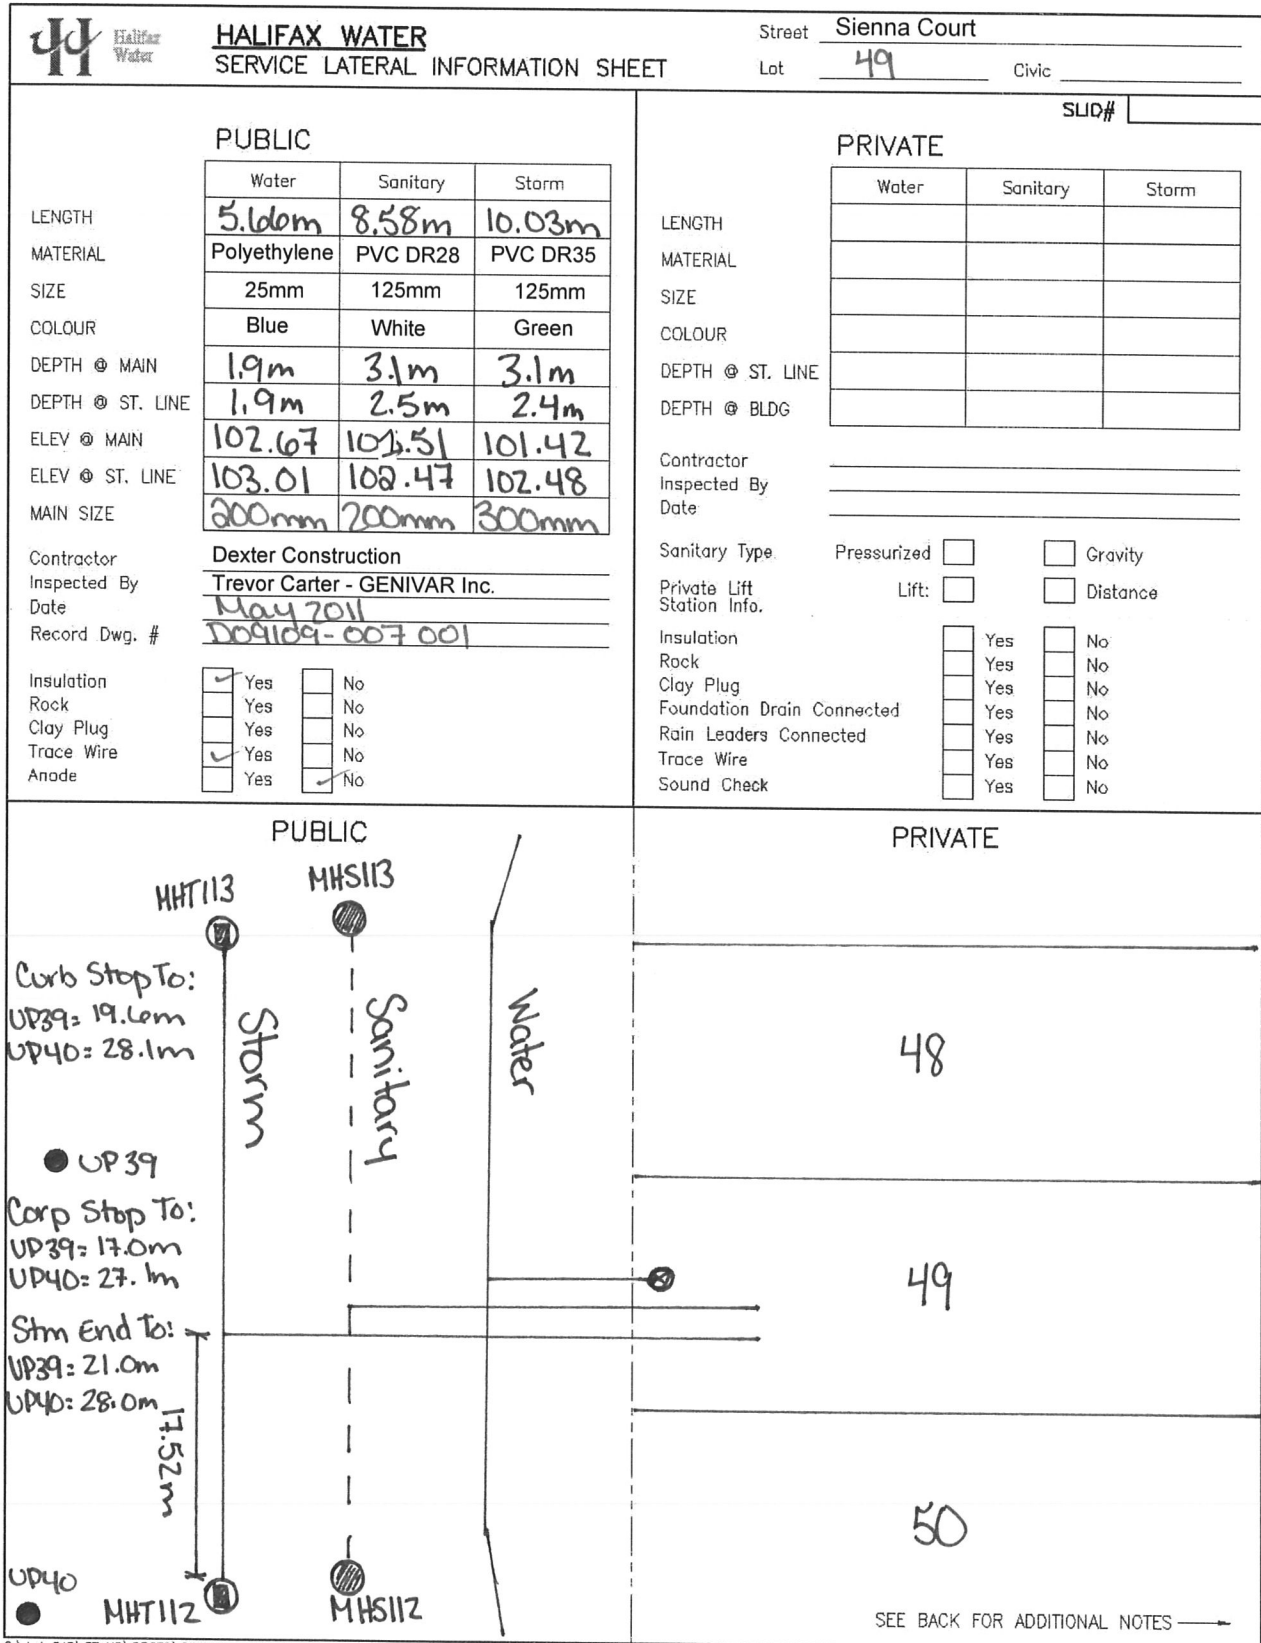 Halifax Water
HALIFAX WATER
SERVICE LATERAL INFORMATION SHEET
Street Sienna Court
Lot 49 Civic
SLID#
PUBLIC
Water Sanitary Storm
LENGTH 5.66m 8.58m 10.03m
MATERIAL Polyethylene PVC DR28 PVC DR35
SIZE 25mm 125mm 125mm
COLOUR Blue White Green
DEPTH @ MAIN 1.9m 3.1m 3.1m
DEPTH @ ST. LINE 1.9m 2.5m 2.4m
ELEV @ MAIN 102.67 101.51 101.42
ELEV @ ST. LINE 103.01 102.47 102.48
MAIN SIZE 200mm 200mm 300mm
Contractor Dexter Construction
Inspected By Trevor Carter - GENIVAR Inc.
Date May 2011
Record Dwg. # D09109-007 001
Insulation Yes No
Rock Yes No
Clay Plug Yes No
Trace Wire Yes No
Anode Yes No
PRIVATE
Water Sanitary Storm
LENGTH
MATERIAL
SIZE
COLOUR
DEPTH @ ST. LINE
DEPTH @ BLDG
Contractor
Inspected By
Date
Sanitary Type Pressurized Gravity
Private Lift Station Info. Lift: Distance
Insulation Yes No
Rock Yes No
Clay Plug Yes No
Foundation Drain Connected Yes No
Rain Leaders Connected Yes No
Trace Wire Yes No
Sound Check Yes No
PUBLIC
MHT113 MHS113
Curb Stop To:
UP39= 19.6m
UP40= 28.1m
Storm
Sanitary
Water
UP39
Corp Stop To:
UP39= 17.0m
UP40= 27.1m
Stm End To:
UP39= 21.0m
UP40= 28.0m
17.52m
UP40
MHT112 MHS112
PRIVATE
48
49
50
SEE BACK FOR ADDITIONAL NOTES